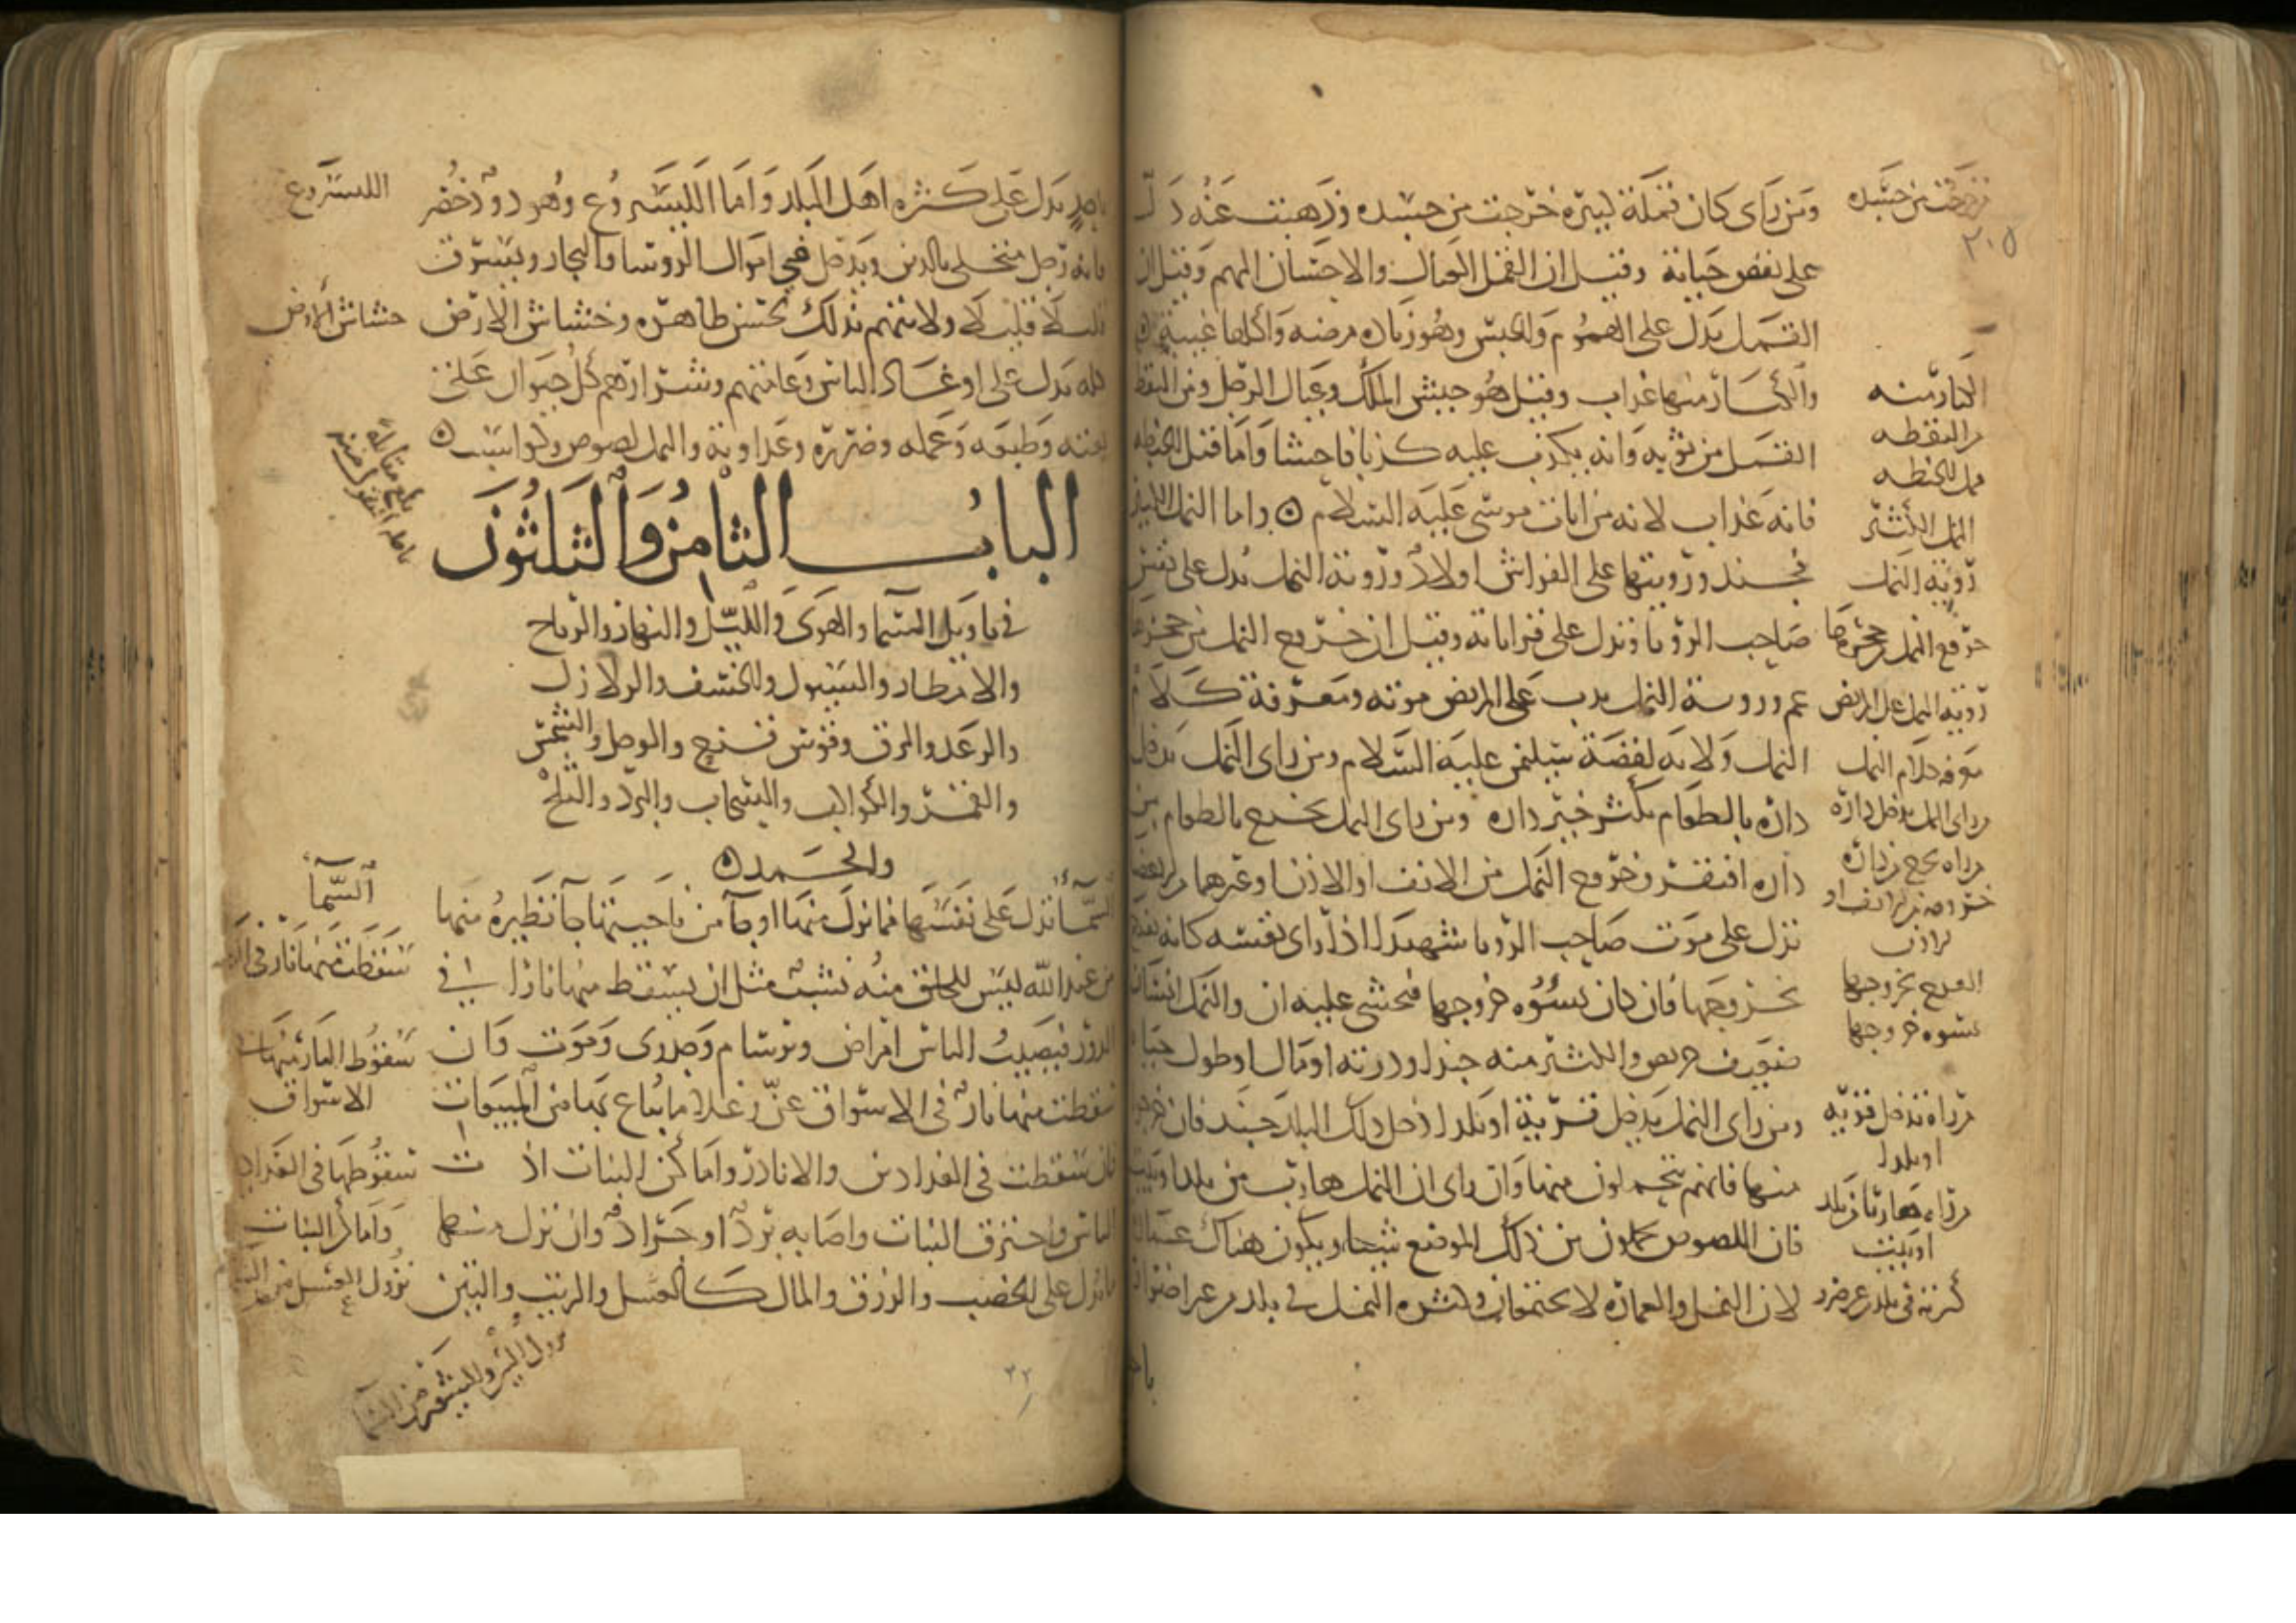 ومن راى كان قملة كبيره خرجت من جسده وذهبت عنه دل
على نقص حياته وقيل ان القمل العيال والاحسان اليهم وقيل ان
القمل يدل على الهموم والحبس وهو زياده مرضه واكلها غيبة
والكبار منها عذاب وقيل هو جيش الملك وعيال الرجل ومن التقط
القمل من ثوبه وانه يكذب عليه كذبا فاحشا واما قمل الحنطه
فانه عذاب لانه من ايات موسى عليه السلام ۞ واما النمل الكثير
فجند ورويتها على الفراش اولاد وروية النمل تدل على نفس
صاحب الرويا وتدل على قراباته وقيل ان خروج النمل من جحرها
غم وروية النمل يدب على المريض موته ومعرفة كلام
النمل ولايه لقصة سليمن عليه السلام ومن راى النمل يدخل
داره بالطعام يكثر خير داره ومن راى النمل يخرج بالطعام من
داره افتقر وخروج النمل من الانف او الاذن او غيرهما
تدل على موت صاحب الرويا شهيدا اذا راى نفسه كانه يفرح
بخروجها فان كان يسوه خروجها فيخشى عليه ان والنمل انسان
ضعيف حريص والكثير منه جند او ذريه او مال او طول حياه
ومن راى النمل يدخل قرية او بلدا دخل ذلك البلد جند فان خرجو
منها فانهم يتحملون منها وان راى ان النمل هارب من بلد او بيت
فان اللصوص يحملون من ذلك الموضع شيا ويكون هناك عمار
لان النمل والعمارة لا يجتمعان وكثره النمل في بلد من غير اضرار
باحد
خرجت من جسده
٢٠٥
الكبار منه
من التقطه
قمل الحنطه
النمل الكثير
روية النمل
خروج النمل من جحرها
روية النمل على المريض
معرفة كلام النمل
من راى النمل يدخل داره
من راه يخرج من داره
خروجه من الانف او
الاذن
الفرح بخروجها
يسوه خروجها
من راه تدخل قرية
او بلدا
من راه هاربا من بلد
او بيت
كثرته في بلد من غير ضرر
باحد يدل على كثره اهل البلد واما اليسروع وهو دود خضر
فانه رجل متحلى بالدين ويدخل في اموال الروسا والتجار ويسرق
قليلا قليلا ولا يتهم بذلك لحسن ظاهره وخشاش الارض
كله يدل على اوغاد الناس وعامتهم وشرارهم كل حيوان على
نعته وطبعه وعمله وضرره وعداوته والنمل لصوص وكواسب ۞
الباب الثامن والثلثون
في تاويل السما والهوى والليل والنهار والرياح
والامطار والسيول والخسف والزلازل
والرعد والبرق وقوس قزح والوحل والشمس
والقمر والكواكب والسحاب والبرد والثلج
والجمد ۞
السما تدل على نفسها فما نزل منها او جا من ناحيتها جا نظيره منها
من عند الله ليس للخلق منه نسب مثل ان يسقط منها نار في
الدور فيصيب الناس امراض وبرسام وجدرى وموت وان
سقطت منها نار في الاسواق عز وغلا ما يباع بها من المبيعات
فان سقطت في الفدادين والانادر واماكن النبات اذت
الناس واحترق النبات واصابه برد او جراد وان نزل منها
ما يدل على الخصب والرزق والمال كالعسل والزيت والتين
٢٢
اليسروع
خشاش الارض
بلغ مقابلة
السما
سقطت منها نار في الدور
سقوط النار منها في
الاسواق
سقوطها في الفدادين
واماكن النبات
نزول العسل من السما
نزول من السما